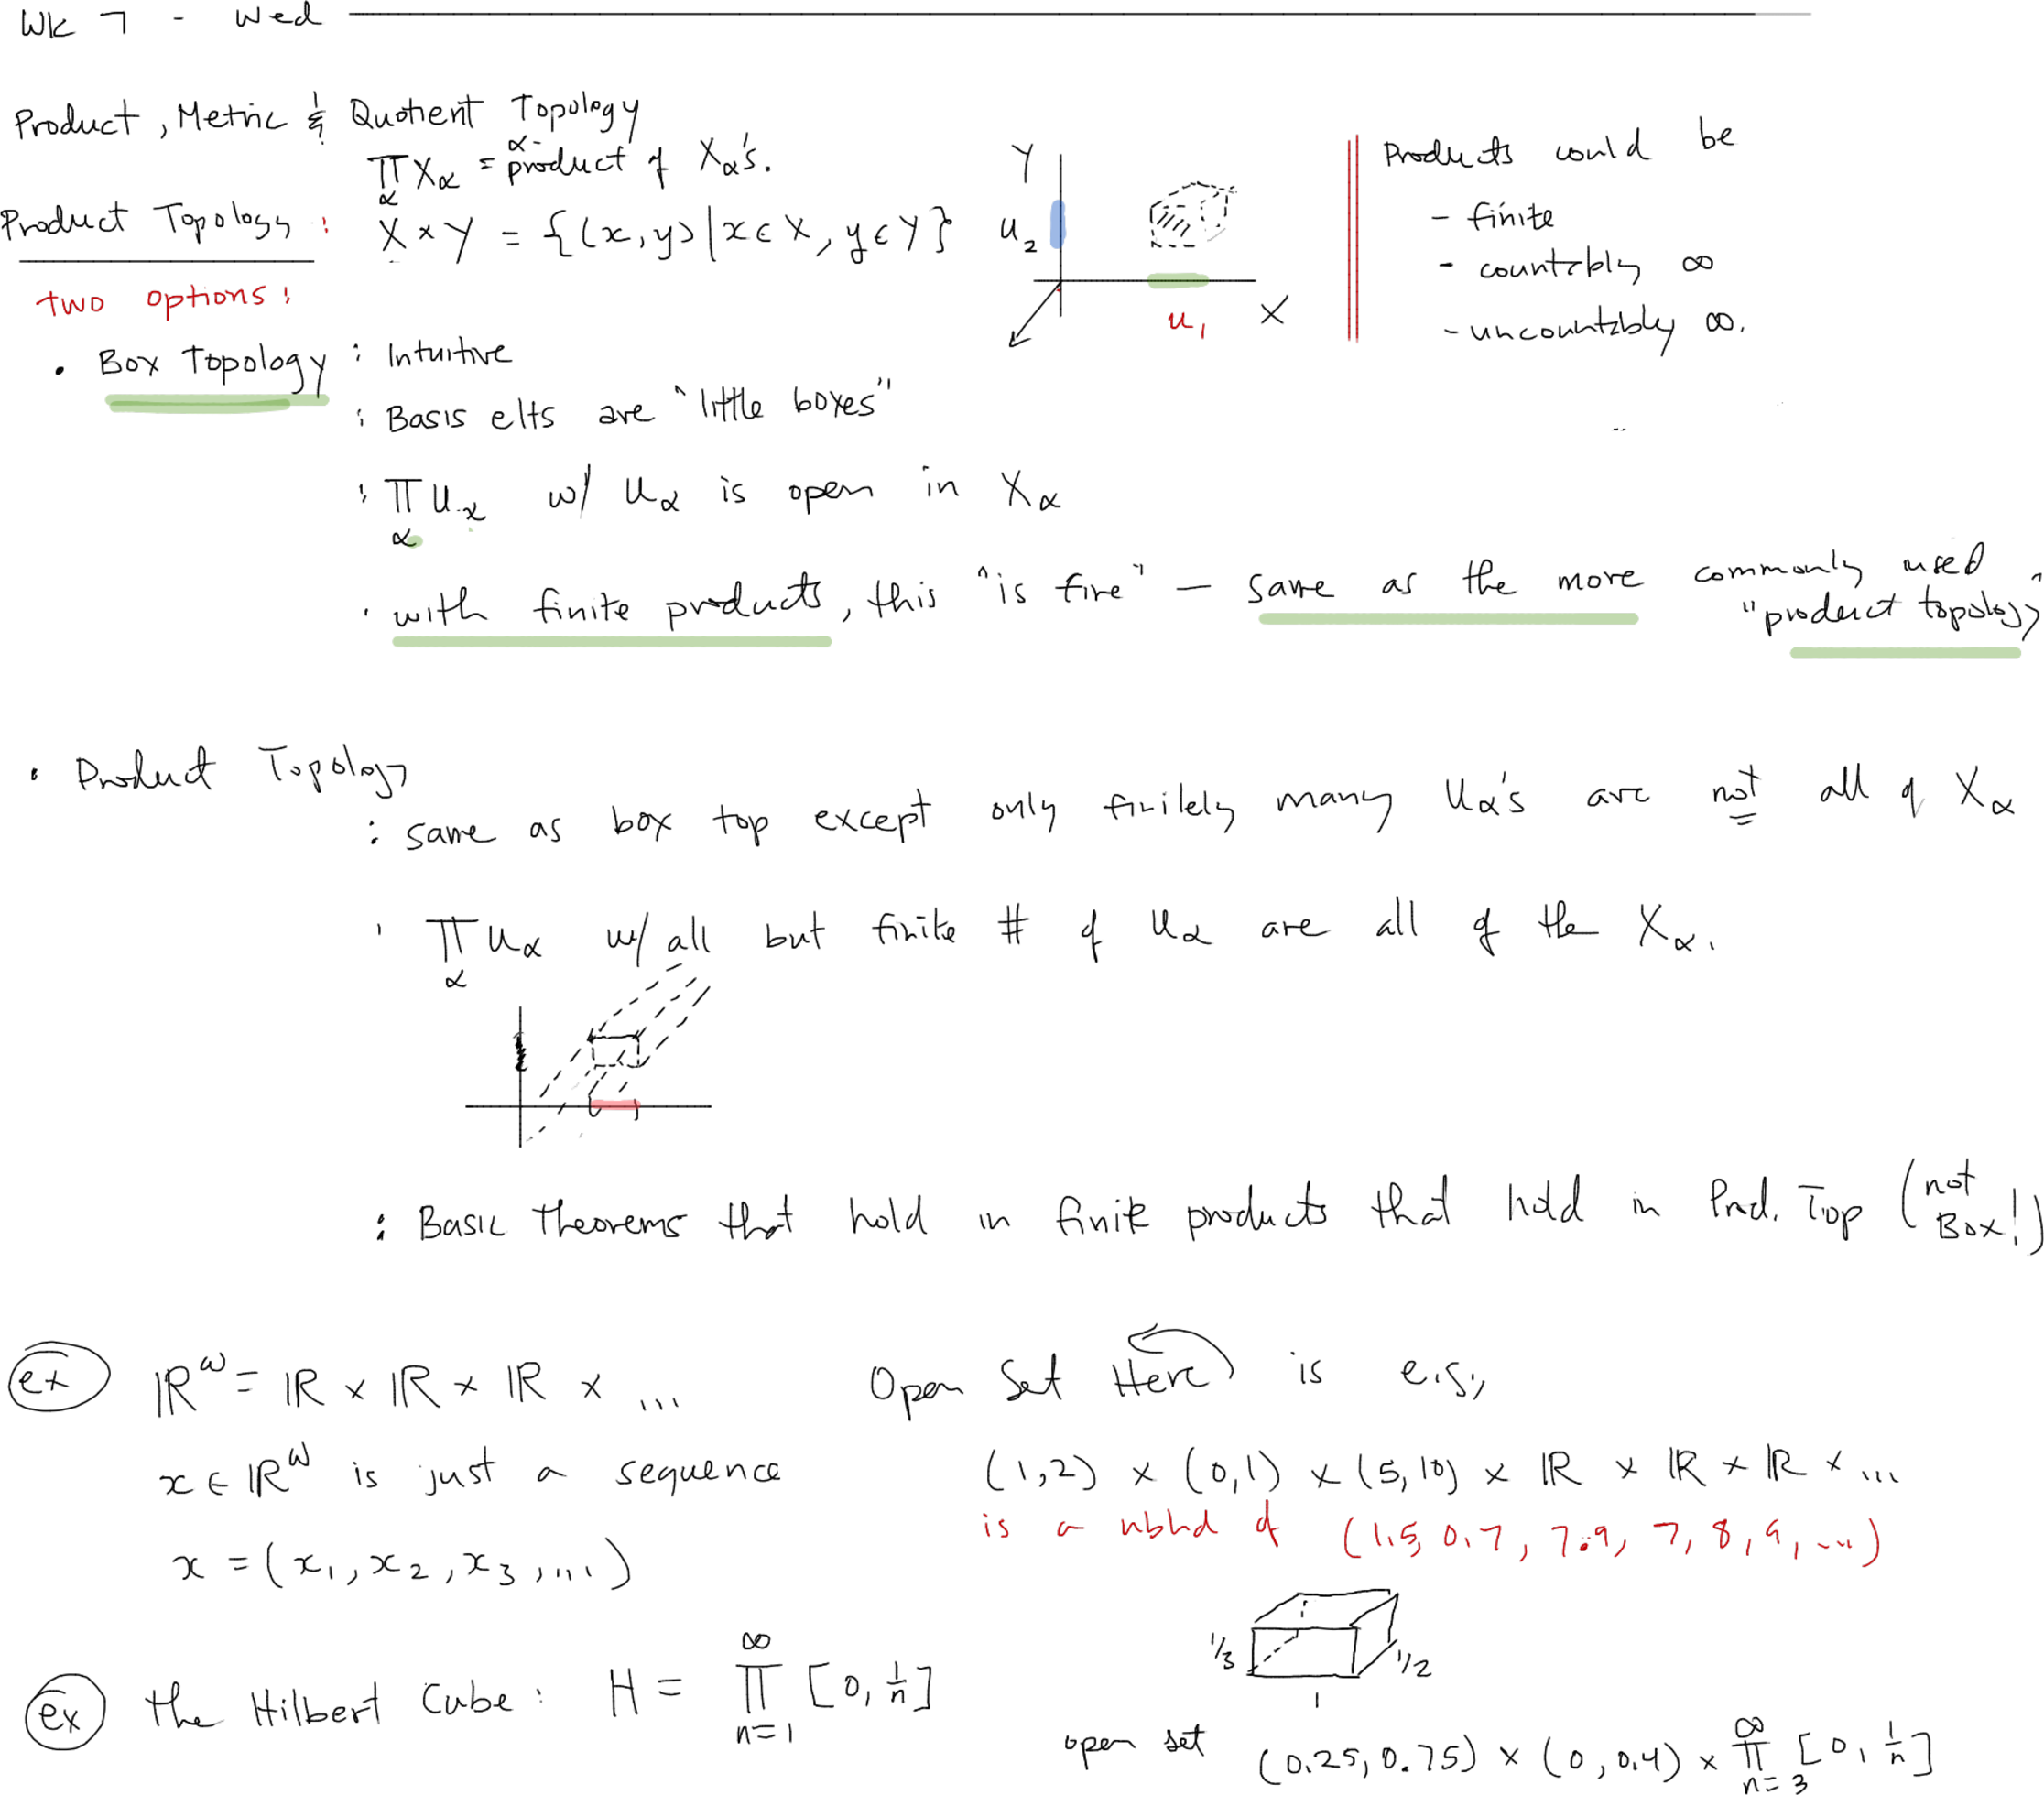 Wk 7 - Wed
Product, Metric & Quotient Topology
∏_α X_α = product of X_α's.
Product Topology : X × Y = {(x,y) | x ∈ X, y ∈ Y}
Y
U_2
U_1
X
Products could be
- finite
- countably ∞
- uncountably ∞.
two options:
• Box Topology : Intuitive
: Basis elts are "little boxes"
: ∏_α U_α w/ U_α is open in X_α
: with finite products, this "is fine" — same as the more commonly used
"product topology"
• Product Topology
: same as box top except only finitely many U_α's are not all of X_α
: ∏_α U_α w/ all but finite # of U_α are all of the X_α.
: Basic theorems that hold in finite products that hold in Prod. Top (not Box!)
ex R^ω = R × R × R × ...
Open Set Here is e.g.,
x ∈ R^ω is just a sequence
(1,2) × (0,1) × (5,10) × R × R × R × ...
is a nbhd of (1.5, 0.7, 7.9, 7, 8, 9, ...)
x = (x_1, x_2, x_3, ...)
1/3
1/2
1
ex the Hilbert Cube : H = ∏_{n=1}^∞ [0, 1/n]
open set (0.25, 0.75) × (0, 0.4) × ∏_{n=3}^∞ [0, 1/n]